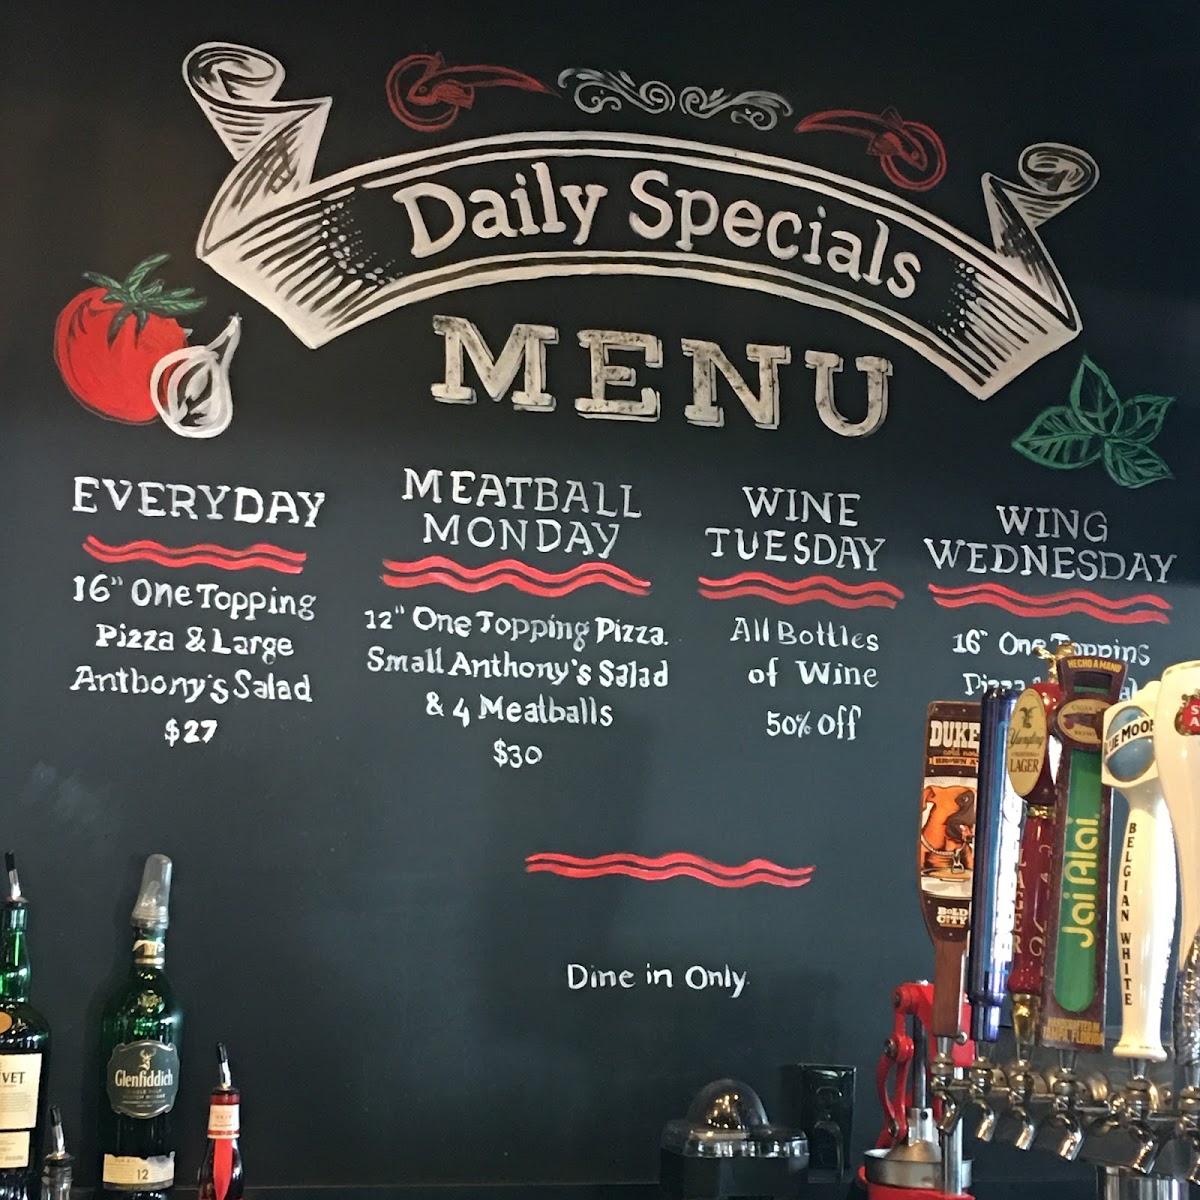 Daily Specials
MENU
EVERYDAY
16" One Topping
Pizza & Large
Anthony's Salad
$27
MEATBALL
MONDAY
12" One Topping Pizza.
Small Anthony's Salad
& 4 Meatballs
$30
WINE
TUESDAY
All Bottles
of Wine
50% Off
WING
WEDNESDAY
16" One Topping
Pizza
Dine in Only
DUKE
BROWN A
BOLD
CITY
Yuengling
LAGER
LAGER
HECHO A MANO
CIGAR CITY
Jai Alai
FLORIDA
BLUE MOON
BELGIAN WHITE
ST
A
VET
Glenfiddich
12